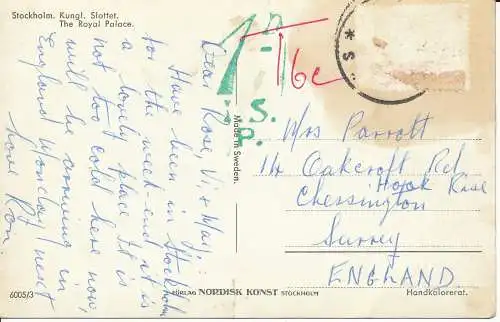 Stockholm. Kungl. Slottet.
The Royal Palace.
Dear Rose, Vi + May,:
Have been in Stockholm
for the week-end it is
a lovely place. It is
not too cold here now,
will be arriving in
England Monday next
Love Ron.
T 6c
S.
P.
S *
Made in Sweden.
Mrs Parrott
14 Oakcroft Rd
Hook Rise
Chessington
Surrey
ENGLAND
6005/3
FÖRLAG NORDISK KONST STOCKHOLM
Handkolorerat.